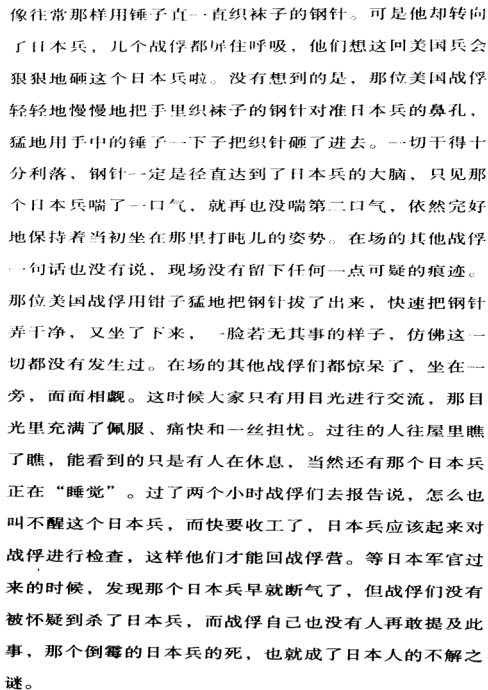 像往常那样用锤子直一直织袜子的钢针。可是他却转向
了日本兵，几个战俘都屏住呼吸，他们想这回美国兵会
狠狠地砸这个日本兵啦。没有想到的是，那位美国战俘
轻轻地慢慢地把手里织袜子的钢针对准日本兵的鼻孔，
猛地用手中的锤子一下子把织针砸了进去。一切干得十
分利落，钢针一定是径直达到了日本兵的大脑，只见那
个日本兵喘了一口气，就再也没喘第二口气，依然完好
地保持着当初坐在那里打盹儿的姿势。在场的其他战俘
一句话也没有说，现场没有留下任何一点可疑的痕迹。
那位美国战俘用钳子猛地把钢针拔了出来，快速把钢针
弄干净，又坐了下来，一脸若无其事的样子，仿佛这一
切都没有发生过。在场的其他战俘们都惊呆了，坐在一
旁，面面相觑。这时候大家只有用目光进行交流，那目
光里充满了佩服、痛快和一丝担忧。过往的人往屋里瞧
了瞧，能看到的只是有人在休息，当然还有那个日本兵
正在“睡觉”。过了两个小时战俘们去报告说，怎么也
叫不醒这个日本兵，而快要收工了，日本兵应该起来对
战俘进行检查，这样他们才能回战俘营。等日本军官过
来的时候，发现那个日本兵早就断气了，但战俘们没有
被怀疑到杀了日本兵，而战俘自己也没有人再敢提及此
事，那个倒霉的日本兵的死，也就成了日本人的不解之
谜。